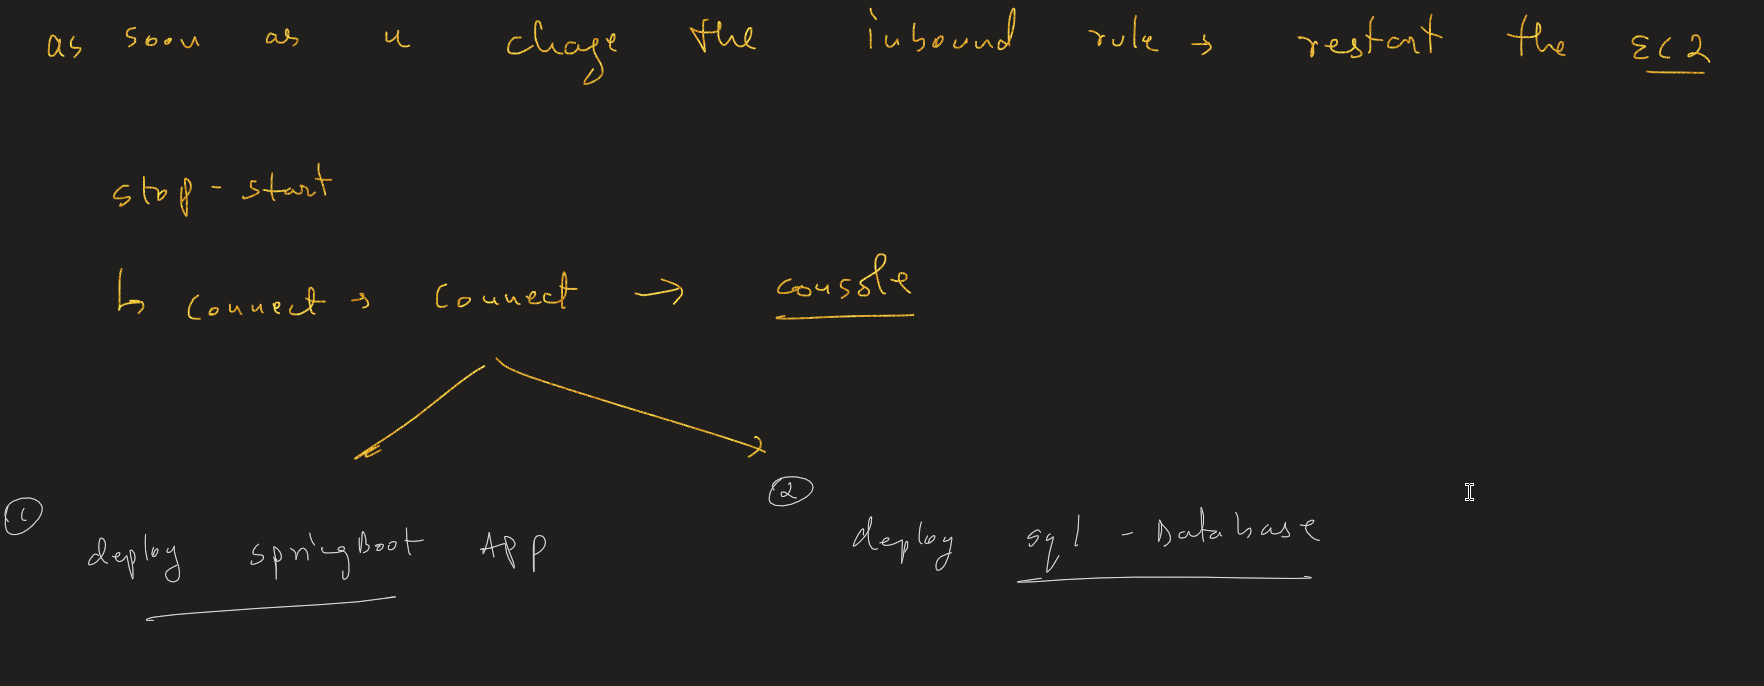 as soon as u chage the inbound rule → restart the EC2
stop - start
↳ connect → connect → console
① deploy springBoot App
② deploy sql - Database